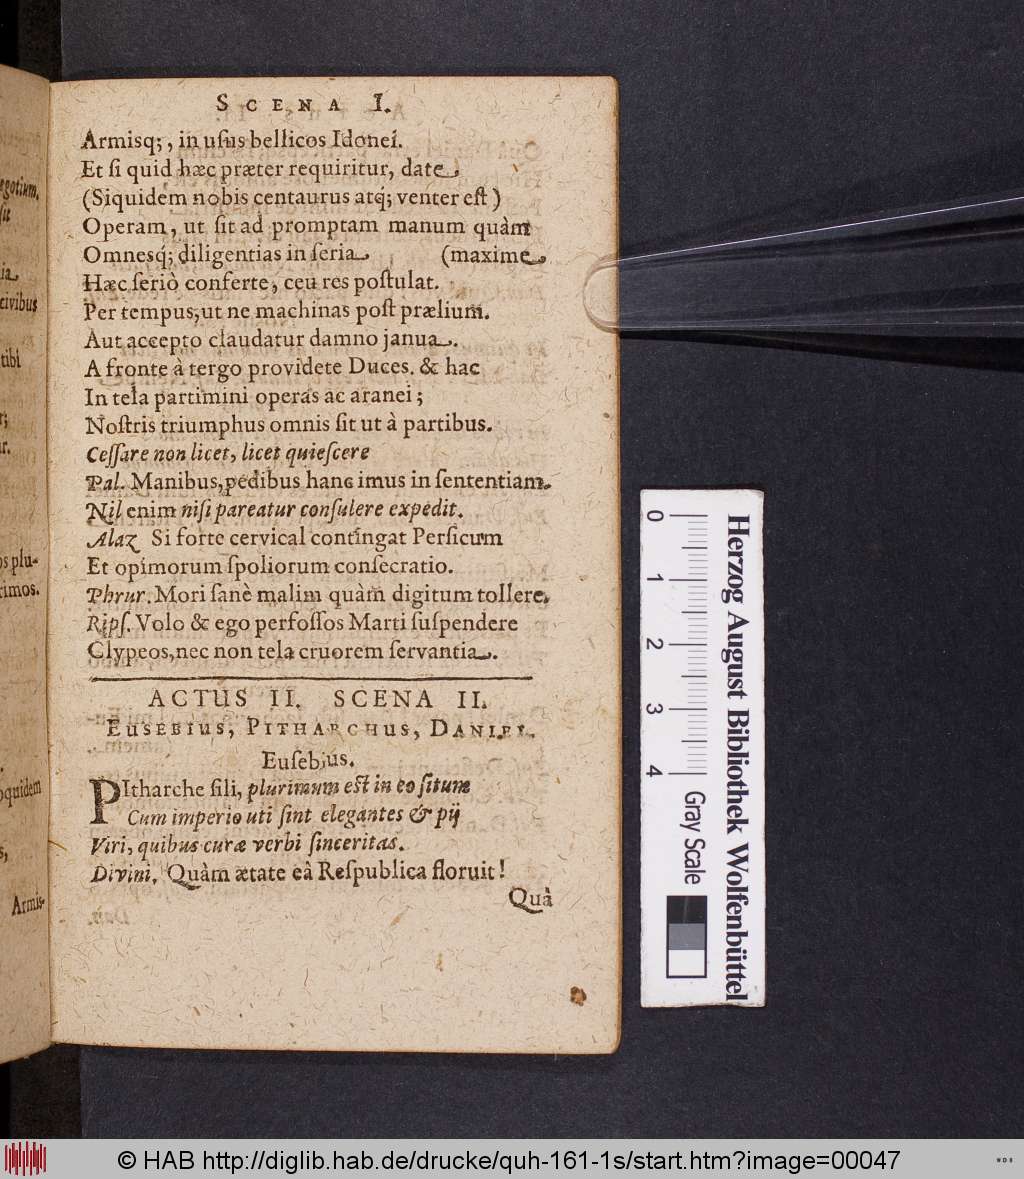 egotium,
sit
ia
civibus
tibi
r;
ur.
os plu-
rimos.
oquidem
s,
Armis-
SCENA I.
Armisq;, in uſus bellicos Idonei.
Et ſi quid hæc præter requiritur, date
(Siquidem nobis centaurus atq́; venter eſt)
Operam, ut ſit ad promptam manum quàm
Omnesq́; diligentias in ſeria (maxime
Hæc ſeriò conferte, ceu res poſtulat.
Per tempus, ut ne machinas poſt prælium.
Aut accepto claudatur damno janua.
A fronte à tergo providete Duces. & hac
In tela partimini operas ac aranei;
Noſtris triumphus omnis ſit ut à partibus.
Ceſſare non licet, licet quieſcere
Pal. Manibus, pedibus hanc imus in ſententiam.
Nil enim niſi pareatur conſulere expedit.
Alaz Si forte cervical contingat Perſicum
Et opimorum ſpoliorum conſecratio.
Phrur. Mori ſanè malim quàm digitum tollere.
Ripſ. Volo & ego perfoſſos Marti ſuſpendere
Clypeos, nec non tela cruorem ſervantia.
ACTUS II. SCENA II.
EUSEBIUS, PITHARCHUS, DANIEL.
Euſebius.
PItharche fili, plurimum est in eo ſitum
Cum imperio uti ſint elegantes & pij
Viri, quibus curæ verbi ſinceritas.
Divini. Quàm ætate eâ Reſpublica floruit!
Quà
0 1 2 3 4 Gray Scale
Herzog August Bibliothek Wolfenbüttel
© HAB http://diglib.hab.de/drucke/quh-161-1s/start.htm?image=00047